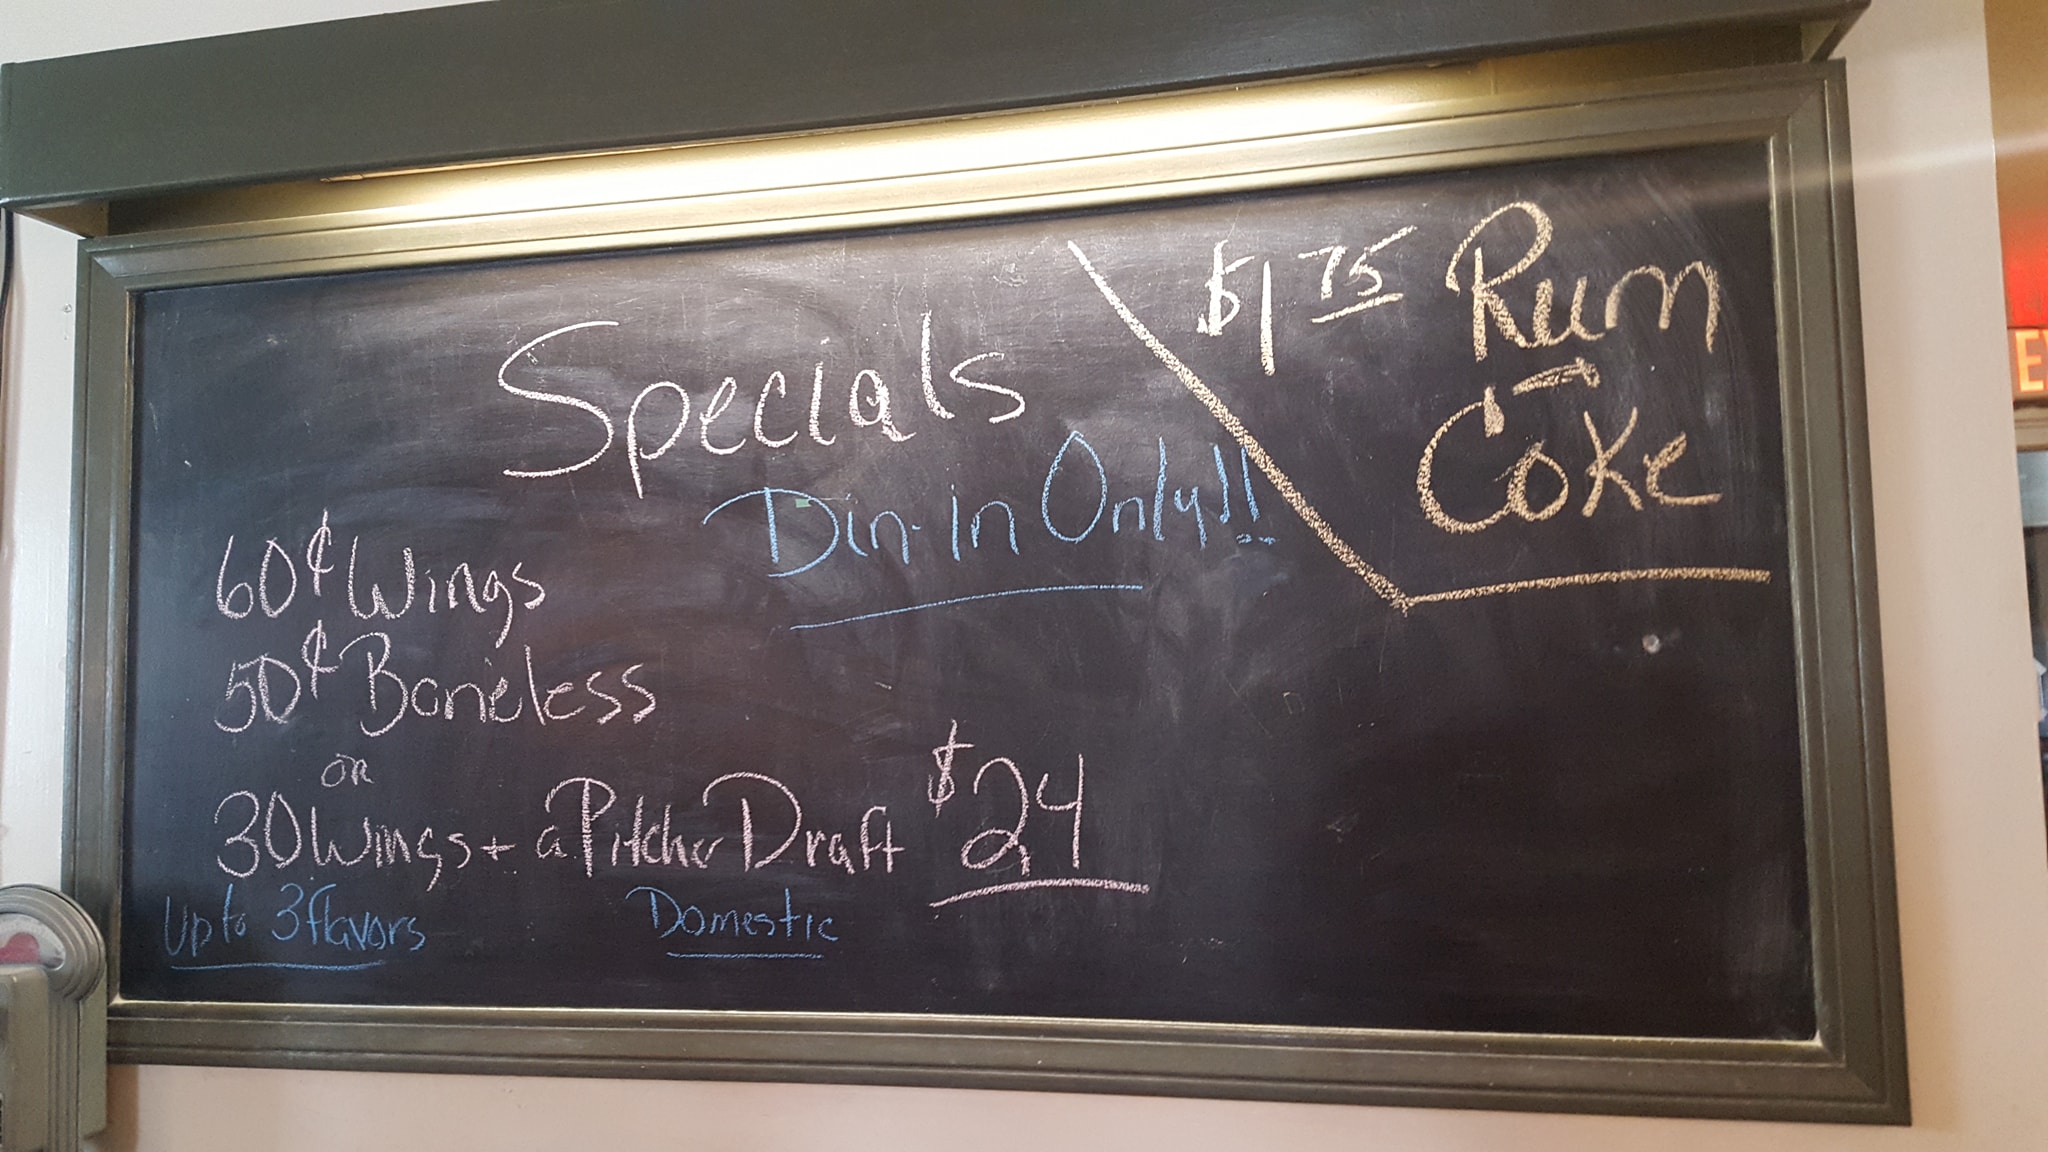 Specials
Din-In Only!!
$1 75 Rum
+
Coke
60¢ Wings
50¢ Boneless
or
30 Wings + a Pitcher Draft $24
Up to 3 flavors Domestic